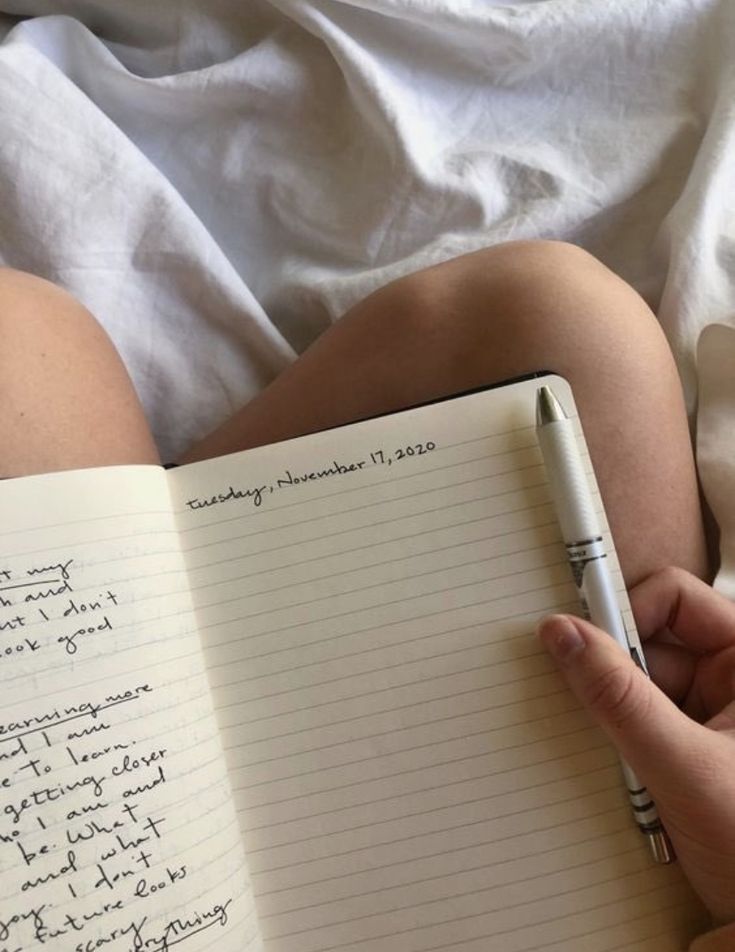 t my
h and
ut I don't
look good
earning more
nd I am
e to learn.
getting closer
ho I am and
be. What
and what
joy. I don't
future looks
scary
rything
tuesday, November 17, 2020